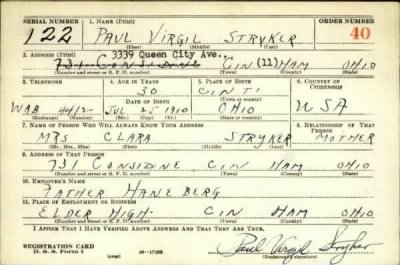 SERIAL NUMBER 1. NAME (Print) ORDER NUMBER
122 PAUL VIRGIL STRYKER 40
(First) (Middle) (Last)
3339 Queen City Ave.
2. ADDRESS (Print)
731 CONSIDINE CIN (11) HAM OHIO
(Number and street or R. F. D. number) (Town) (County) (State)
3. TELEPHONE 4. AGE IN YEARS 5. PLACE OF BIRTH 6. COUNTRY OF CITIZENSHIP
30 CINTI
DATE OF BIRTH (Town or county)
WAB 4412 JUL 25 1910 OHIO USA
(Exchange) (Number) (Mo.) (Day) (Yr.) (State or country)
7. NAME OF PERSON WHO WILL ALWAYS KNOW YOUR ADDRESS 8. RELATIONSHIP OF THAT PERSON
MRS CLARA STRYKER MOTHER
(Mr., Mrs., Miss) (First) (Middle) (Last)
9. ADDRESS OF THAT PERSON
731 CONSIDINE CIN HAM OHIO
(Number and street or R. F. D. number) (Town) (County) (State)
10. EMPLOYER'S NAME
FATHER HANEBERG
11. PLACE OF EMPLOYMENT OR BUSINESS
ELDER HIGH CIN HAM OHIO
(Number and street or R. F. D. number) (Town) (County) (State)
I AFFIRM THAT I HAVE VERIFIED ABOVE ANSWERS AND THAT THEY ARE TRUE.
REGISTRATION CARD
D. S. S. Form 1 Paul Virgil Stryker
(Registrant's signature)